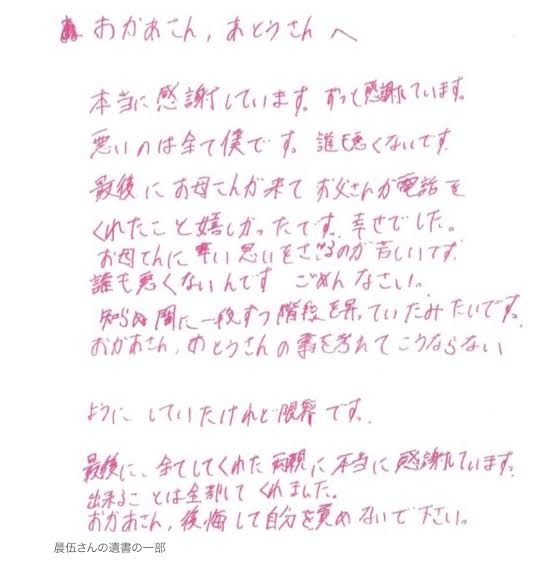 おかあさん、おとうさんへ
本当に感謝しています。ずっと感謝しています。
悪いのは全て僕です。誰も悪くないです
最後にお母さんが来てお父さんが電話を
くれたこと嬉しかったです。幸せでした。
お母さんに辛い思いをさせるのが苦しいです
誰も悪くないんです ごめんなさい。
知らぬ間に一段ずつ階段を昇っていたみたいです。
おかあさん、おとうさんの事を考えてこうならない
ようにしていたけれど限界です。
最後に、全てしてくれた両親に本当に感謝しています。
出来ることは全部してくれました。
おかあさん、後悔して自分を責めないで下さい。
晨伍さんの遺書の一部